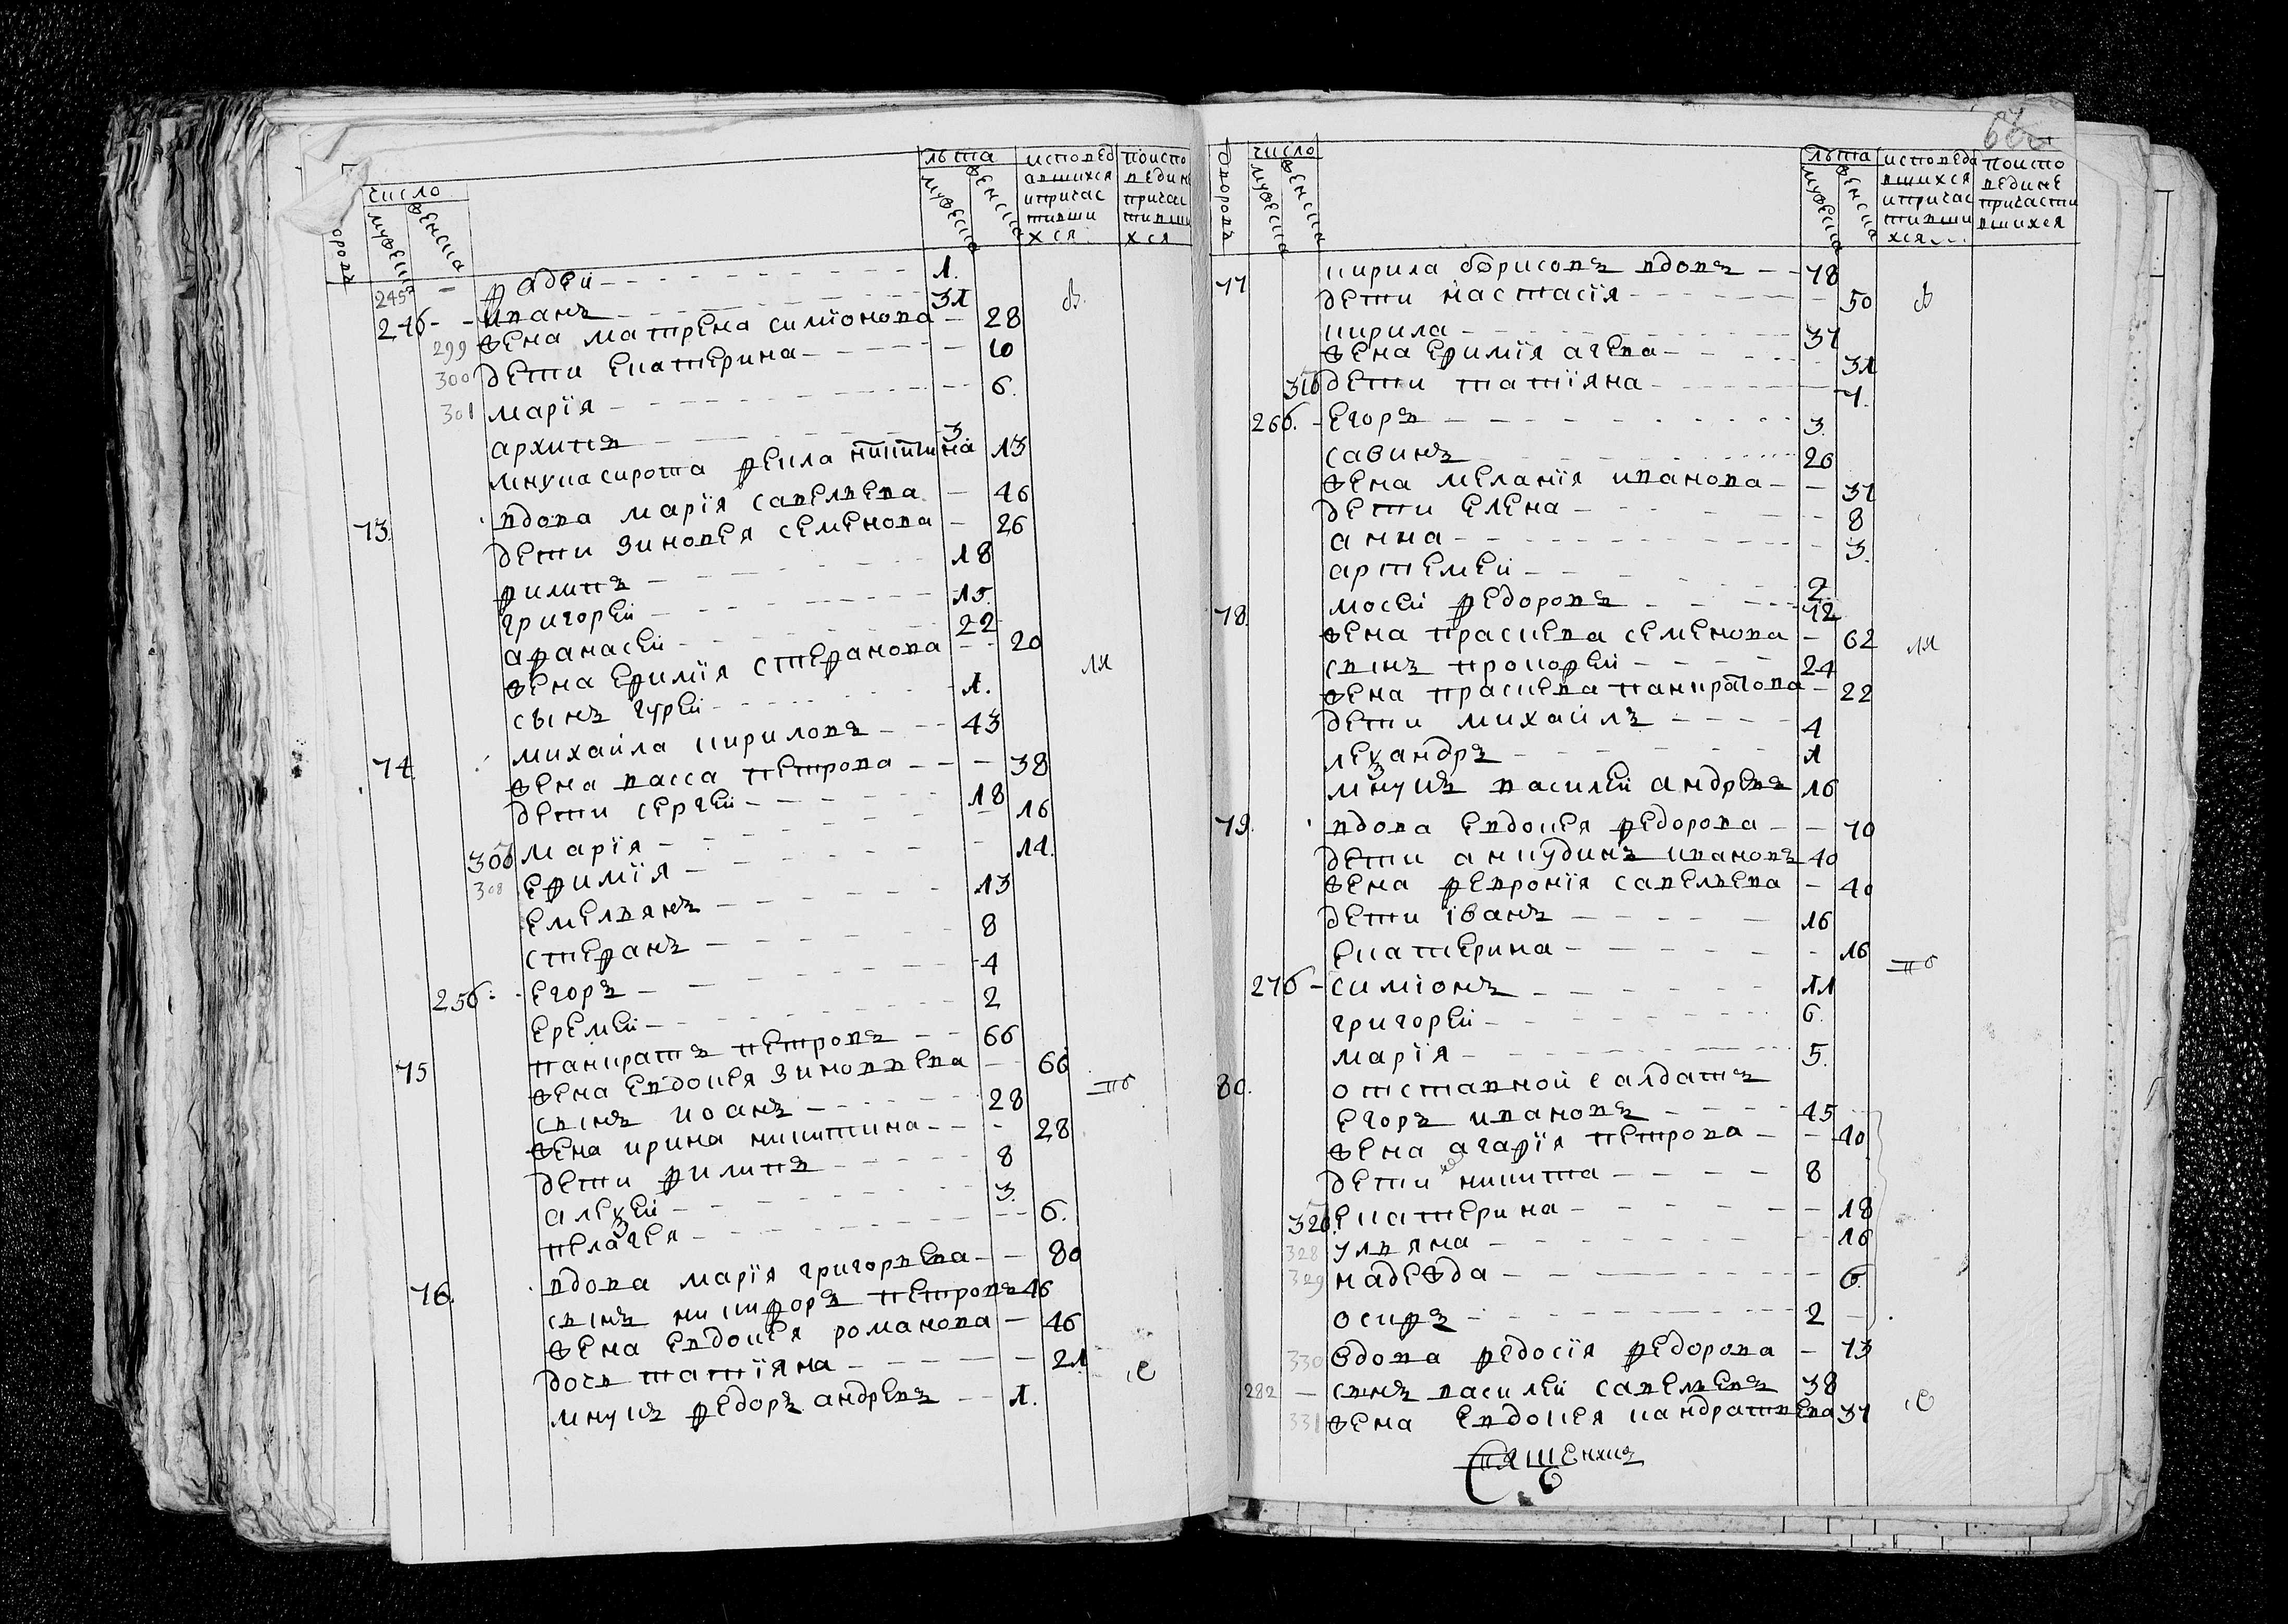 число
мужеска
женска
лѣта
мужеска
женска
исповед
авшихся
ипричас
тивши
хся
поиспо
ведин
причас
тивши
хся
245 – фадеи 1.
246 – иванъ 31
299 жена матрена симïонова – 28
300 дети екатерина – 10
301 марïя – 6.
архипъ 3
внука сирота фекла никитина 13
73. вдова марïя савельева – 46
дети зиновея семенова – 26
филипъ – 18
григореи – 15.
афанасеи – 22
жена ефимïя стефанова – 20
сынъ гуреи – 1.
74 михаила кирилова – 43
жена васса петрова – 38
дети сергеи – 18
306 марïя – 16
308 ефимïя – 14.
емельянъ – 13
стефанъ – 8
256. егоръ – 4
еремеи – 2
75 панкратъ петровъ – 66
жена евдокея зиновьева – 66
сынъ иоанъ – 28
жена ирина никитина – 28
дети филипъ – 8
алеѯеи – 3.
пелагея – 6.
76. вдова марïя григорьева – 80
сынъ никифоръ петровъ 46
жена евдокея романова – 46
дочь татïяна – 21
внукъ федоръ андревъ – 1.
дворовъ
число
мужеска
женска
лѣта
мужеска
женска
исповеда
вшихся
ипричас
тивши
хся
поиспо
ведине
причасти
вшихся
77 кирила борисовъ вдовъ – 78
дети настасïя – 50
кирила – 37
жена ефимïя агева – 31
316 дети татïяна – 7.
266. – егоръ – 3.
савинъ 26
жена меланïя иванова – 37
дети елена – 8
анна – 3.
артемеи – 2
78. мосеи федоровъ – 72
жена праскева семенова – 62
сынъ прокофеи – 24
жена праскева панкратова – 22
дети михаилъ – 4
леѯандръ – 1
внукъ василеи андревъ 16
79. вдова евдокея федорова – 70
дети анкудинъ ивановъ 40
жена февронïя савельева – 40
дети iванъ – 16
екатерина – 16
276 – симïонъ – 11
григореи – 6.
марïя – 5.
80. отставнои салдатъ
егоръ ивановъ – 45
жена агафïя петрова – 40
дети никита – 8
326. екатерина – 18
328 ульяна – 16
329 надежда – 6.
осифъ – 2
330 вдова федосïя федорова – 73
282 – сынъ василеи савельевъ 38
331 жена евдокея кандратьева 37